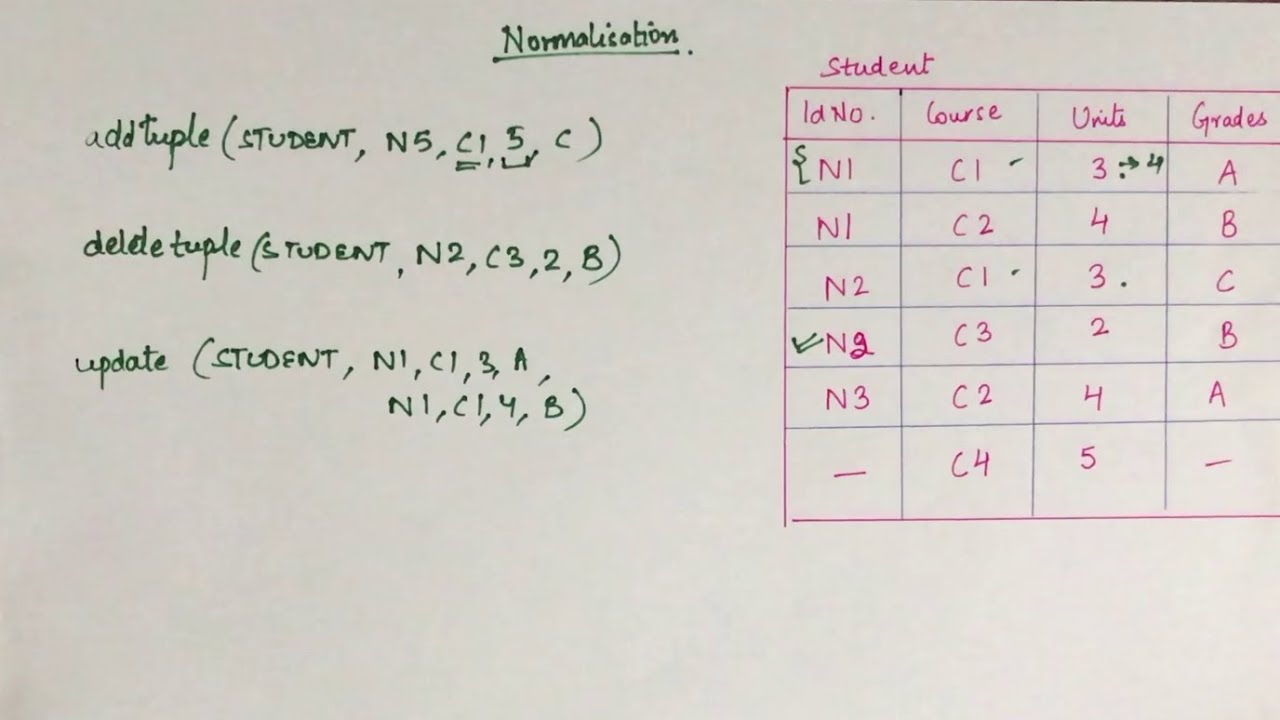 Normalisation.
addtuple (STUDENT, N5, C1, 5, C)
deletetuple (STUDENT, N2, C3, 2, B)
update (STUDENT, N1, C1, 3, A,
N1, C1, 4, B)
Student
Id No. Course Units Grades
N1 C1 3 → 4 A
N1 C2 4 B
N2 C1 3 C
N2 C3 2 B
N3 C2 4 A
— C4 5 —